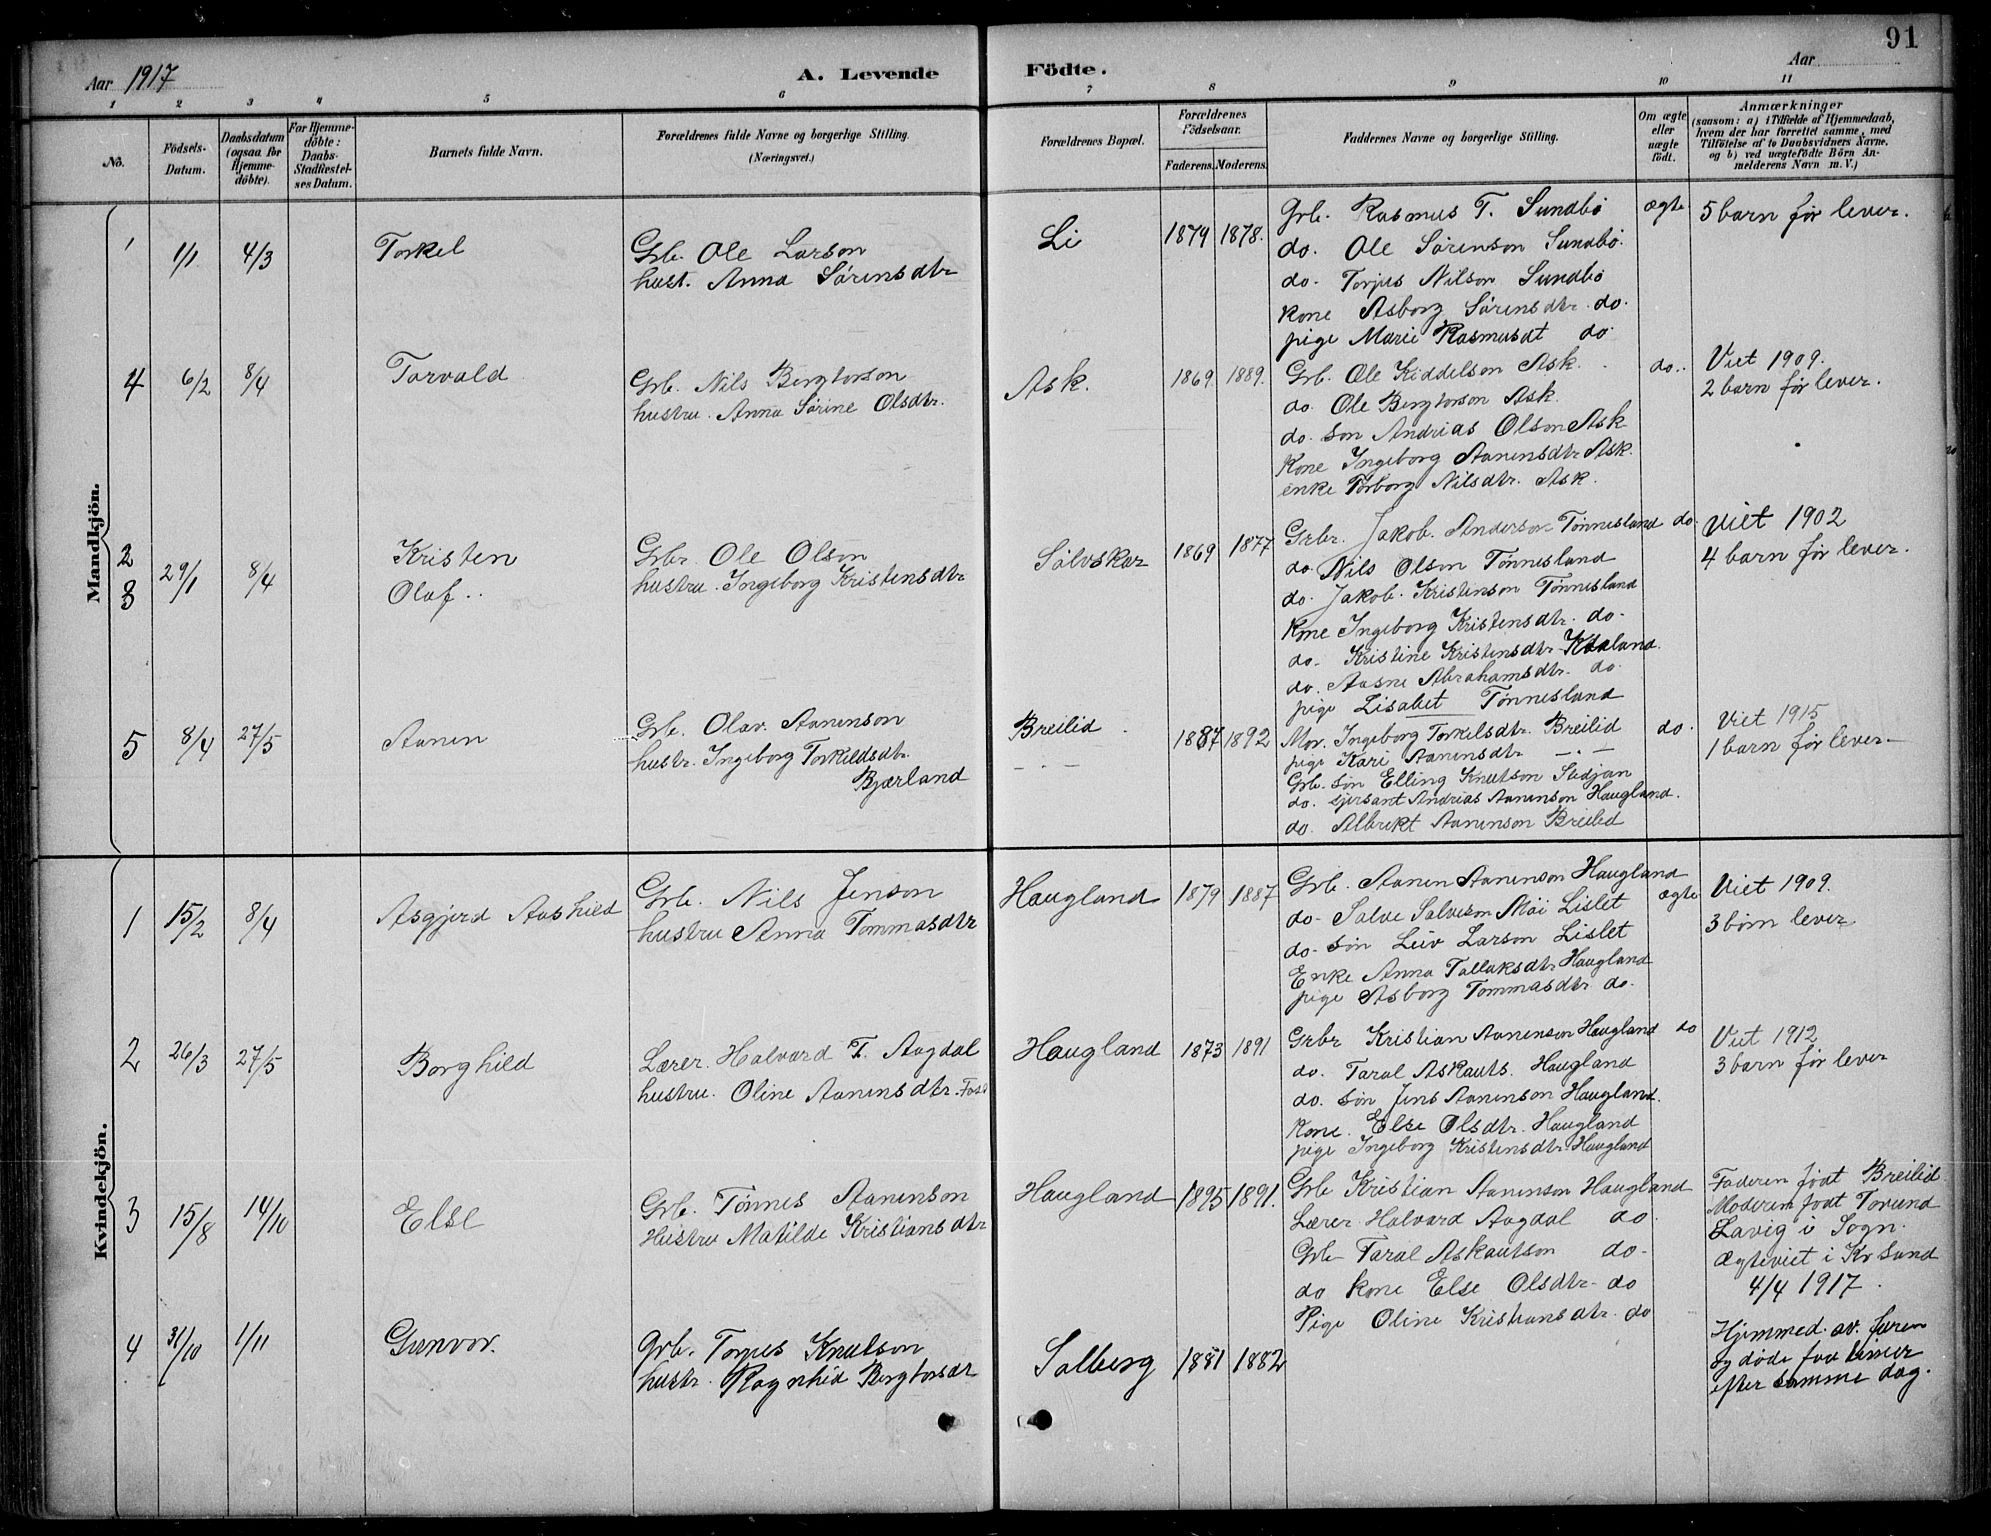 91
Aar 1917
A. Levende
Födte.
Aar
1 2 3 4 5 6 7 8 9 10 11
No.
Födsels-Datum.
Daabsdatum (ogsaa for Hjemme-döbte).
For Hjemme-döbte: Daabs-Stadfæstel-ses Datum.
Barnets fulde Navn.
Forældrenes fulde Navne og borgerlige Stilling. (Næringsvei.)
Forældrenes Bopæl.
Forældrenes Födselsaar.
Faderens. Moderens.
Faddernes Navne og borgerlige Stilling.
Om ægte eller uægte födt.
Anmærkninger
(saasom: a) i Tilfælde af Hjemmedaab,
hvem der har forrettet samme, med
Tilföielse af to Daabsvidners Navne,
og b) ved uægtefödte Börn An-
melderens Navn m. V.)
Mandkjön.
1 1/1 4/3 Torkel
Grb. Ole Larson
hust. Anna Sørensdtr
Li 1879 1878.
Grb. Rasmus T. Sundbø
do. Ole Sørenson Sundbø.
do. Torjus Nilson Sundbø
kone Asborg Sørensdtr. do.
pige Marie Rasmusdt do.
ægte
5 barn før lever.
4 6/2 8/4 Torvald
Grb. Nils Bergtorson
hustru. Anna Sørine Olsdtr.
Ask. 1869 1889.
Grb. Ole Kiddelson Ask.
do. Ole Bergtorson Ask.
do. son Andrias Olson Ask
Kone Ingeborg Aanensdtr Ask.
enke Torborg Nilsdtr. Ask.
do.
Viet 1909.
2 barn før lever.
2
3
29/1 8/4
Kristen
Olaf.
Grbr. Ole Olson
hustru. Ingeborg Kristensdtr
Sølvskar 1869 1877
Grbr. Jakob. Anderson Tønnesland
do. Nils Olson Tønnesland
do. Jakob. Kristenson Tønnesland
kone Ingeborg Kristensdtr. do.
do. Kristine Kristensdtr
do. Aasne Abrahamsdtr. do.
pige Lisabet Tønnesland
do.
viet 1902
4 barn før lever.
5 8/4 27/5 Aanen
Grb. Olav. Aanenson
hustr. Ingeborg Torkildsdtr.
Bjærland
Breilid 1887 1892
Mor. Ingeborg Torkelsdtr. Breilid
pige Kari Aanensdtr — . —
Grb. søn Elling Knutson Stidjan
do. Andrias Aanenson Haugland.
do. Albrekt Aanenson Breilid
do.
Viet 1915
1 barn før lever.
Kvindekjön.
1 15/2 8/4 Asgjerd Aashild
Grb. Nils Jenson
hustru Anna Tommasdtr
Haugland 1879 1887
Grb. Aanen Aanenson Haugland
do. Salve Salveson Møi Lislet
do. søn Leiv Larson Lislet
Enke Anna Tallaksdtr Haugland
pige Asborg Tommasdtr do.
ægte
Viet 1909.
3 børn lever
2 26/3 27/5 Borghild
Lærer. Halvard T. Aagdal
hustru. Oline Aanensdtr.
Haugland 1873 1891
Grbr Kristian Aanenson Haugland
do. Taral Askauts. Haugland
do. søn Jens Aanenson Haugland.
kone. Else Olsdtr. Haugland
pige Ingeborg Kristensdtr. Haugland
do
Viet 1912
3 barn før lever
3 15/8 14/10 Else
Grb. Tønnes Aanenson
Hustru Matilde Kristiansdtr
Haugland 1895 1891.
Grb Kristian Aanenson Haugland
Lærer. Halvard Aagdal do.
Grb Taral Askautson do.
do kone Else Olsdtr do
Pige Oline Kristiansdtr. do
Faderen født Breilid
Moderen født
Lavig i Sogn.
Ægteviet i Kr Sand
4/4 1917.
4 31/10 1/11 Gunvor.
Grb. Torjus Knutson
hustr. Ragnhid Bergtorsdt
Solberg 1881 1882
Hjemmed. av. faren
og døde faa timer
efter samme dag.